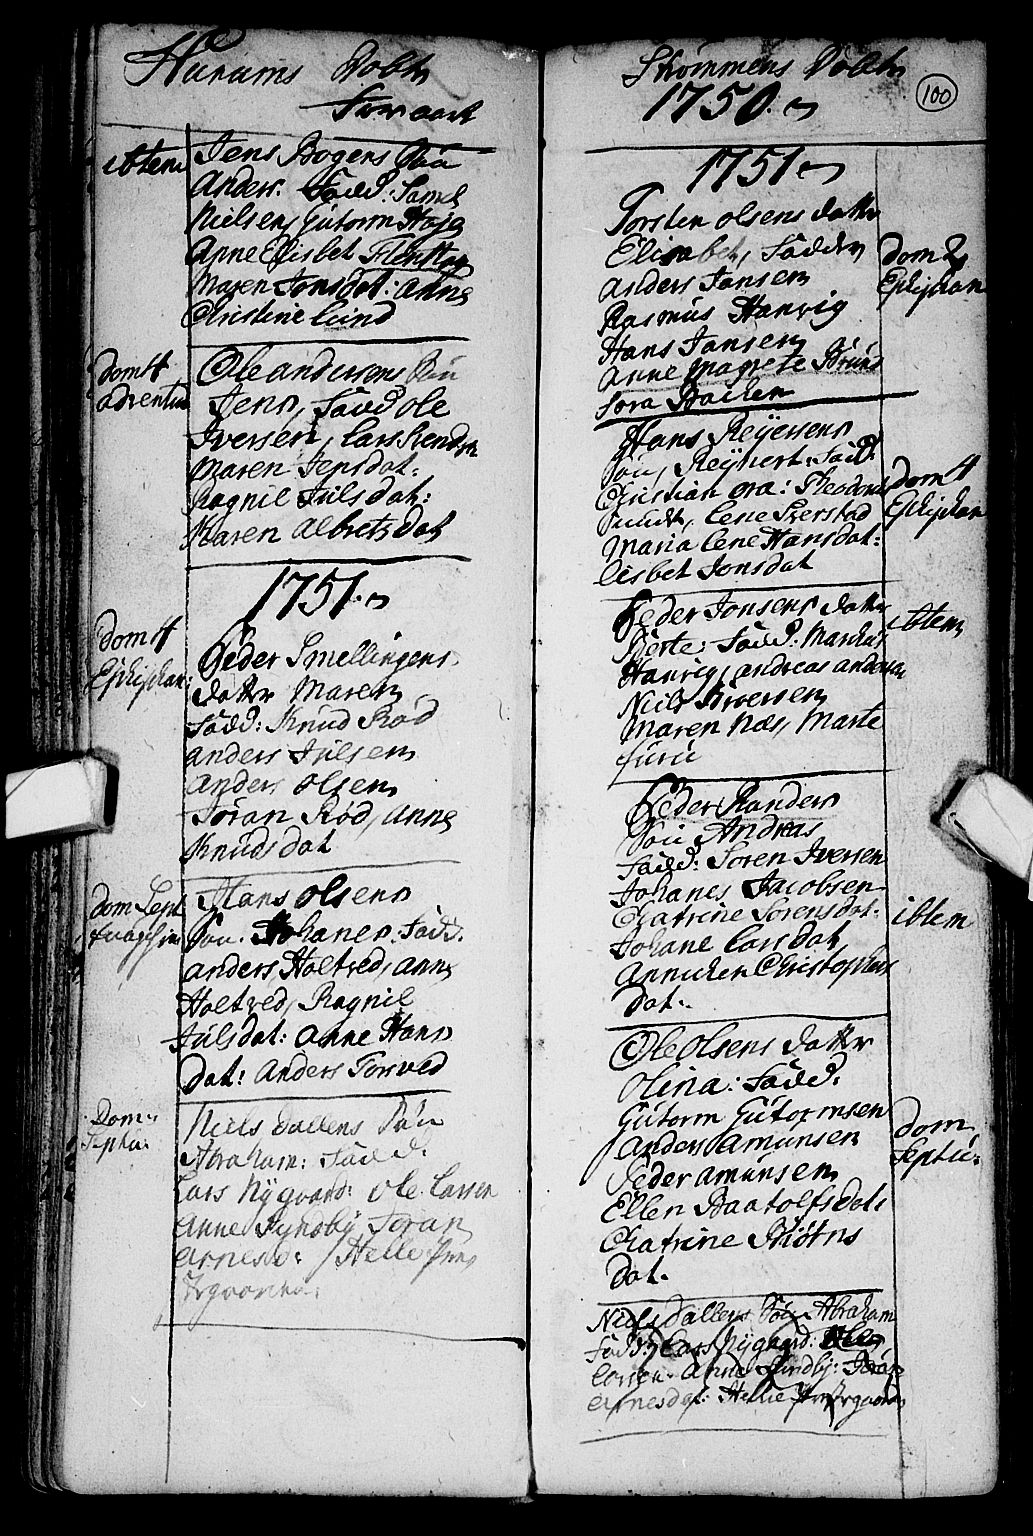 Hurums Dobte
Strømmens Dobte
1750.
100
ibtem
Jens Bogers Søn
Anders: Fadd: Samel
Nielsen, Gutorm Hoje
Anne Elisbet
Maren Jonsdat: Anne
Christine Lund
dom 4
adventus
Ole andersens Søn
Jens, Fadd Ole
Iversen, Lars
Maren Jensdat:
Ragnil Julsdat:
Maren Albretsdat
1751.
dom 4
Ephiphan:
Peder Smellingens
datter Maren
Fadd: Knud Rød
anders Julsen
Anders olsen
Søran Rød, anne
Knudsdat
dom Sept
Hans olsens
Søn. Johanes. Fadd.
anders Holtved, anne
Holtved, Ragnil
Julsdat: anne Hans
dat: anders Torved
Dom.
Septu:
Niels Dallens Søn
Abraham: Fadd.
Lars Nygaard: Ole Larsen
Anne Søran
arnesd: Helle
1751
Torsten olsens datter
Elisabet, Fadder
anders Jansen
Rasmus Hanvig
Hans Jansen
Anne Magrete
dom 2
Ephiphan
Hans Reyersens
Søn, Reynert: Fadd:
Christian
Lene
Maria Lene Hansdat:
lisbet Jonsdat
dom 4
Ephiphan
Peder Jonsens datter
Berte: Fadd: Marckus
Hanvig, andreas andersen
Niels Iversen
Maren Næs, Marte
furu
ibtem
Peder Randers
Søn Andreas
Fadd: Soren Iversen
Johanes Jacobsen
Chatrine Sorensdat:
Johane Larsdat,
Annicken Christophers
dat.
ibtem
Ole Olsens datter
olina: Fadd:
Gutorm Gutormsen
Anders amunsen
Peder amunsen
Ellen Baatolfsdat:
Chatrine
dat.
dom
Septu:
Niels Dallens Søn Abraham
Fadd: Lars Nygaard: Ole
Larsen. Anne Sundby: Søran
arnesdat: Helle